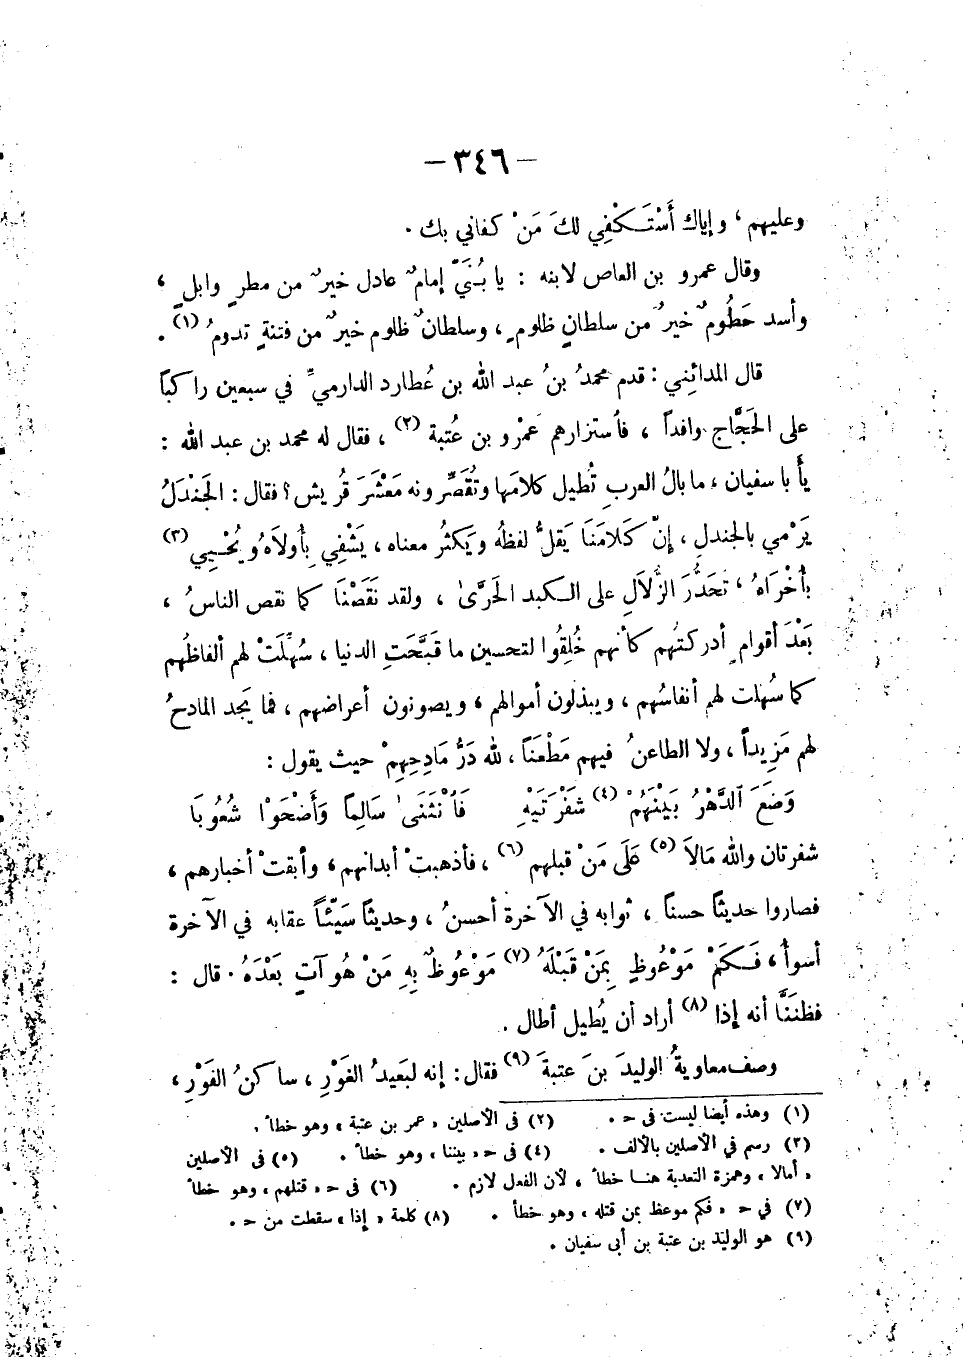 — ٣٤٦ —
وعليهم ، وإياك أَسْتَكْفِي لكَ مَنْ كفاني بك .
وقال عمرو بن العاص لابنه : يا بُنَيَّ إمامٌ عادل خيرٌ من مطرٍ وابلٍ ،
وأسد حَطُومٌ خيرٌ من سلطانٍ ظلومٍ ، وسلطانٌ ظلوم خيرٌ من فتنةٍ تدومُ (١) .
قال المدائِنِي : قدم محمدُ بنُ عبد الله بن عُطارد الدارميِّ في سبعين راكبًا
على الحَجَّاج وافداً ، فأستزارهم عَمْرو بن عُتبة (٢) ، فقال له محمد بن عبد الله :
يأَبا سفيان ، ما بالُ العربِ تُطيل كلامَها وتُقَصِّرونه مَعْشَرَ قُريش ؟ فقال : الجَندَلُ
يَرْمي بالجندلِ ، إنّ كَلامَنَا يَقلُّ لفظهُ وَيَكثرُ معناه ، يَشْفِي بِأُولاَهُ وَيُحْيِي (٣)
بأُخْرَاهُ ، تَحَدُّرَ الزُّلاَلِ على الكبد الحَرَّىٰ ، ولقد نَقَصْنَا كما نقص الناسُ ،
بَعْدَ أقوامٍ أدركتُهم كأنهم خُلِقُوا لتحسين ما قَبَّحَتِ الدنيا ، سُهِّلَتْ لهم ألفاظُهم
كما سُهلت لهم أنفاسُهم ، ويبذلون أموالهم ، ويصونون أعراضهم ، فما يَجد المادحُ
لهم مَزِيداً ، ولا الطاعنُ فيهم مَطْعَنًا ، لله دَرُّ مَادِحِهِمْ حيث يقول :
وَضَعَ ٱلدَّهْرُ بَيْنَهُمْ (٤) شَفْرَتَيْهِ فَٱنْثَنَىٰ سَالِمًا وَأَضْحَوْا شُعُوبَا
شفرتان والله مَالاَ (٥) عَلَى مَنْ قبلهم (٦) ، فأذهبتْ أبدانهم ، وأبقتْ أخبارهم ،
فصاروا حديثًا حسنًا ، ثوابه في الآخرة أحسنُ ، وحديثًا سَيِّئًا عقابه في الآخرة
أسوأُ ، فَكَمْ مَوْعُوظٍ بِمَنْ قَبْلَهُ (٧) مَوْعُوظٌ بِهِ مَنْ هُو آتٍ بَعْدَهُ . قال :
فظنَنَّا أنه إذا (٨) أراد أن يُطيل أطال .
وصف معاويةُ الوليدَ بنَ عتبةَ (٩) فقال : إنه لبَعيدُ الغَوْرِ ، ساكنُ الفَوْرِ ،
(١) وهذه أيضا ليست فى ح . (٢) فى الأصلين « عمر بن عتبة » وهو خطأ .
(٣) رسم في الأصلين بالألف . (٤) فى ح « بيننا » وهو خطأ . (٥) فى الأصلين
« أمالا » وهمزة التعدية هنا خطأ ، لأن الفعل لازم . (٦) فى ح « قتلهم » وهو خطأ
(٧) في ح « فكم موعظ بمن قتله » وهو خطأ . (٨) كلمة « إذا » سقطت من ح .
(٩) هو الوليد بن عتبة بن أبى سفيان .